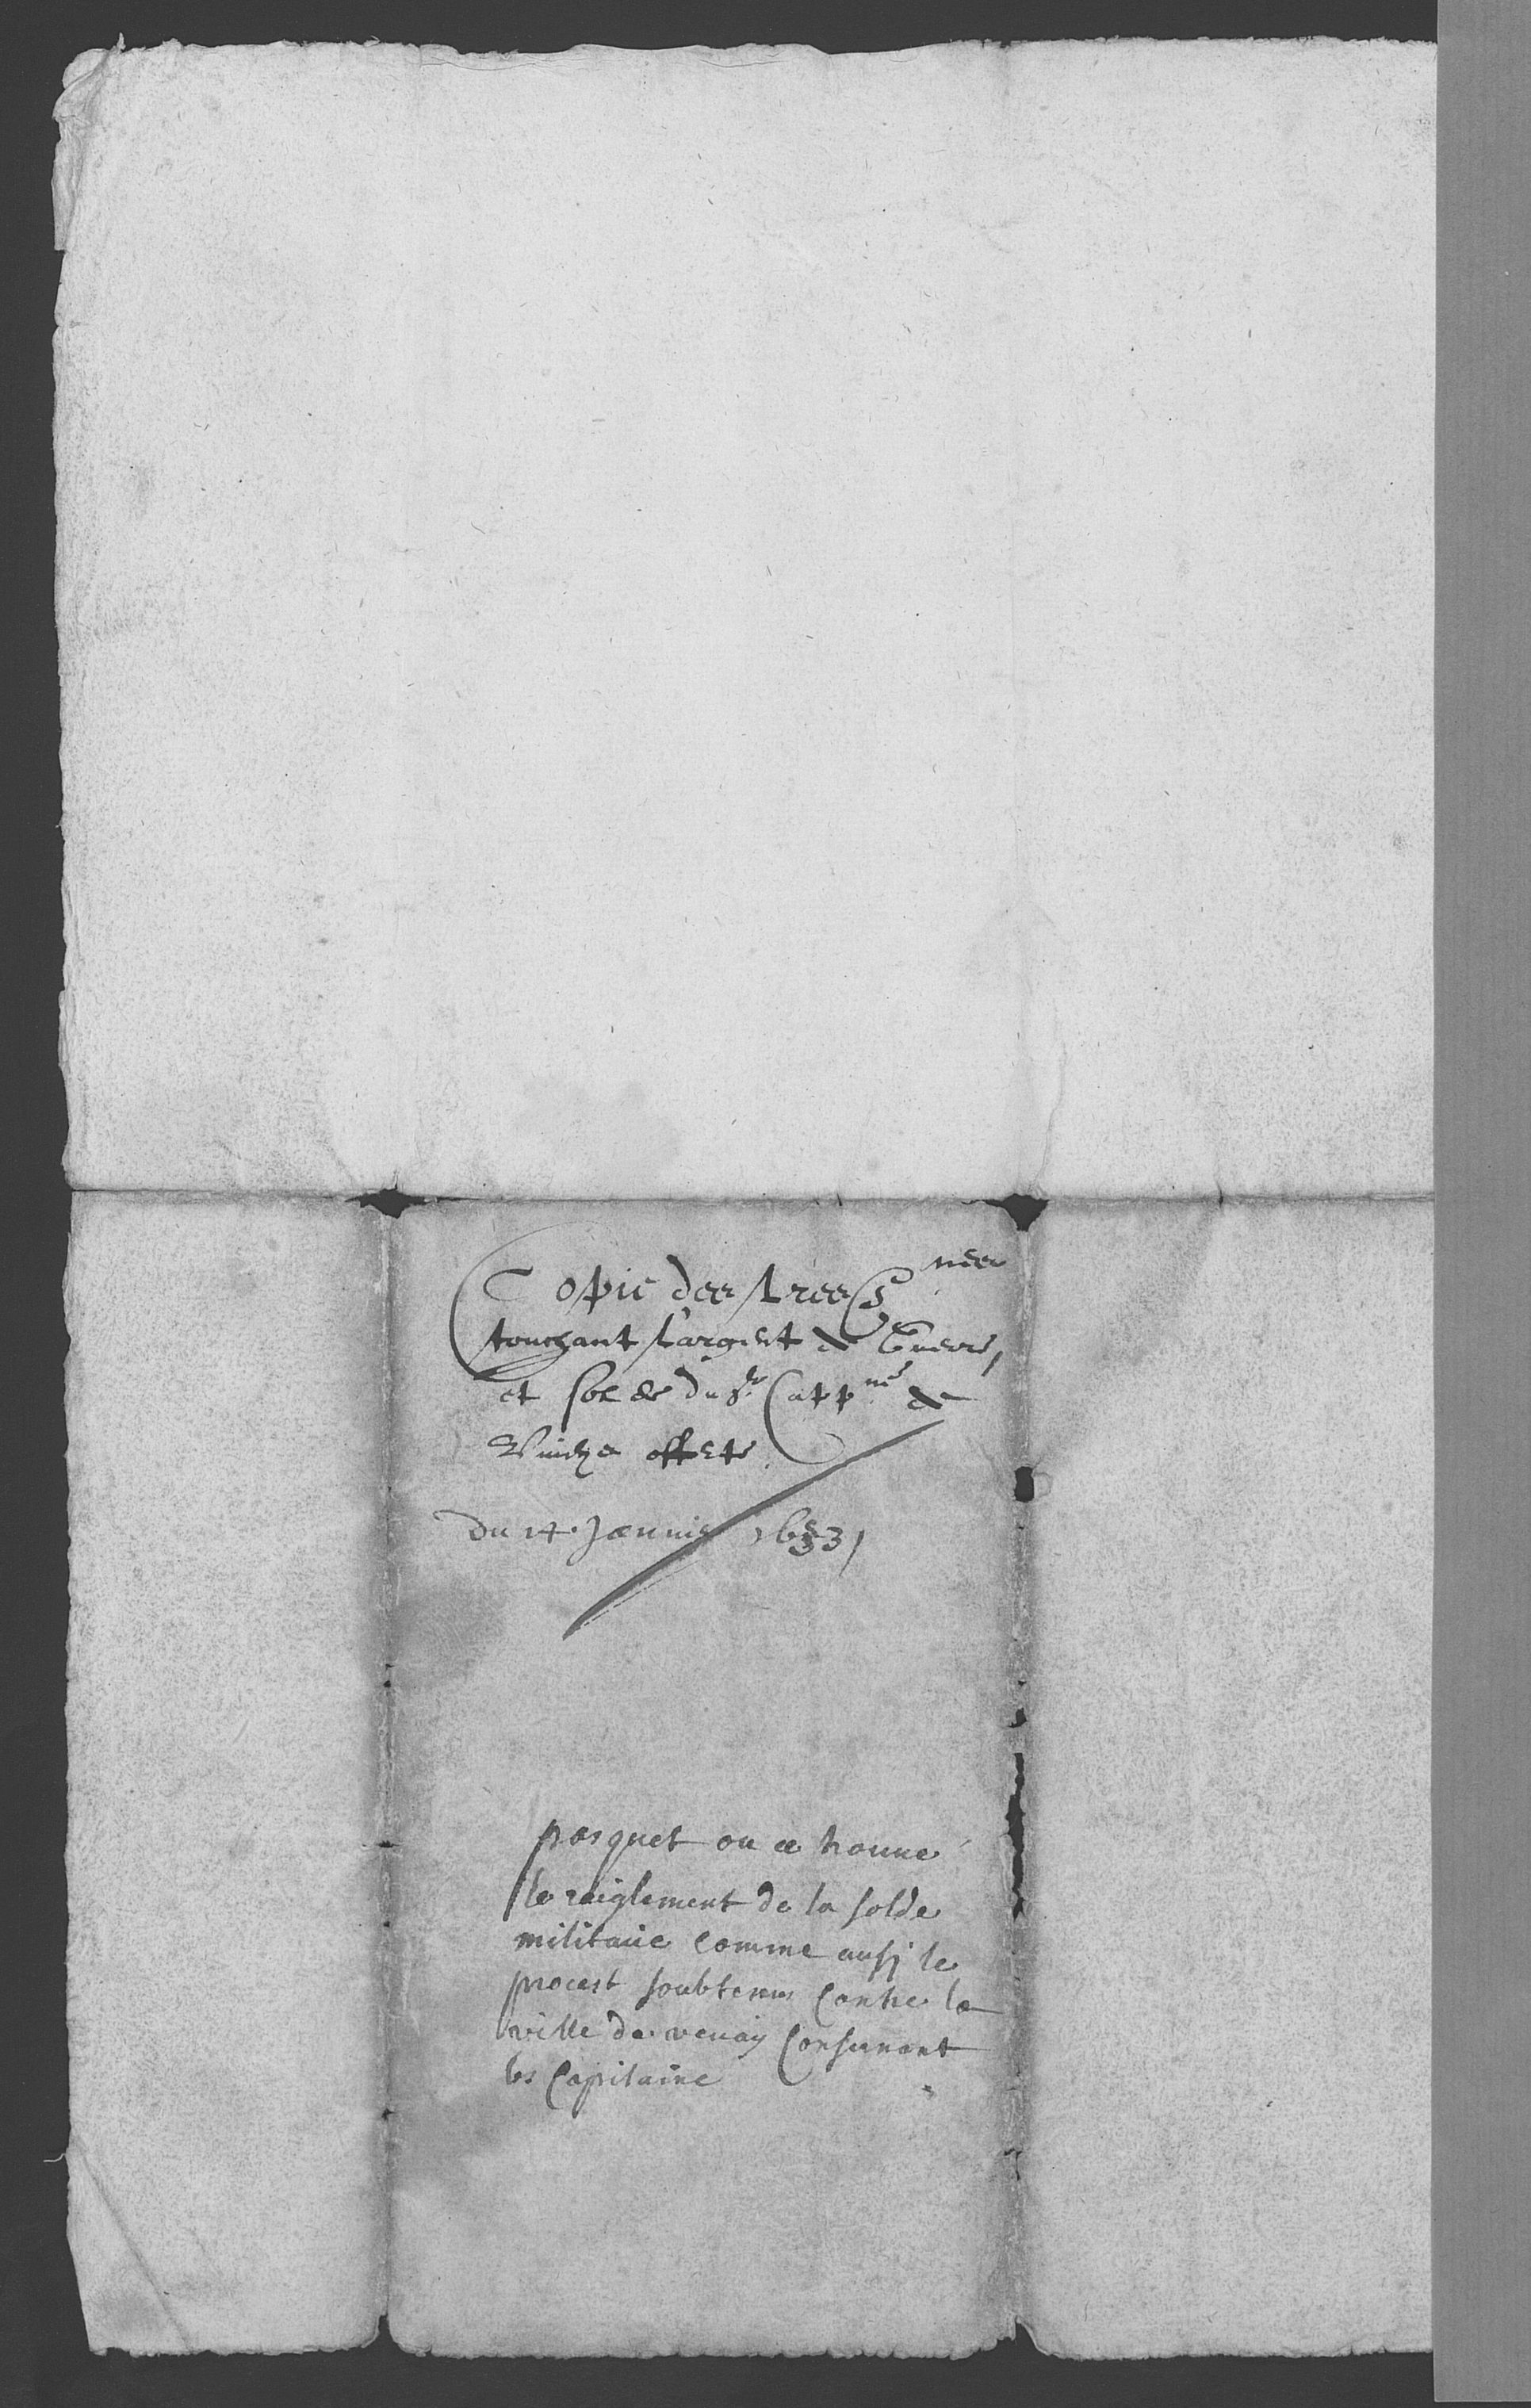 Copie des lrēs Ēnées
touchant l'argent de Guerre,
et solde du Sr. Cappne de
offete
du 14. Janvier 1653,
pasquet ou ce trouve
le raiglement de la solde
militaire comme ausy le
procest soubtenu contre la
ville de Consernant
les Capitaine